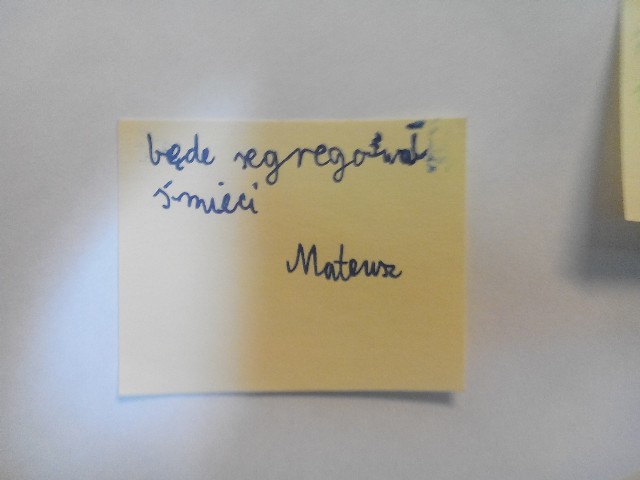 będe segregował
śmieci
Mateusz